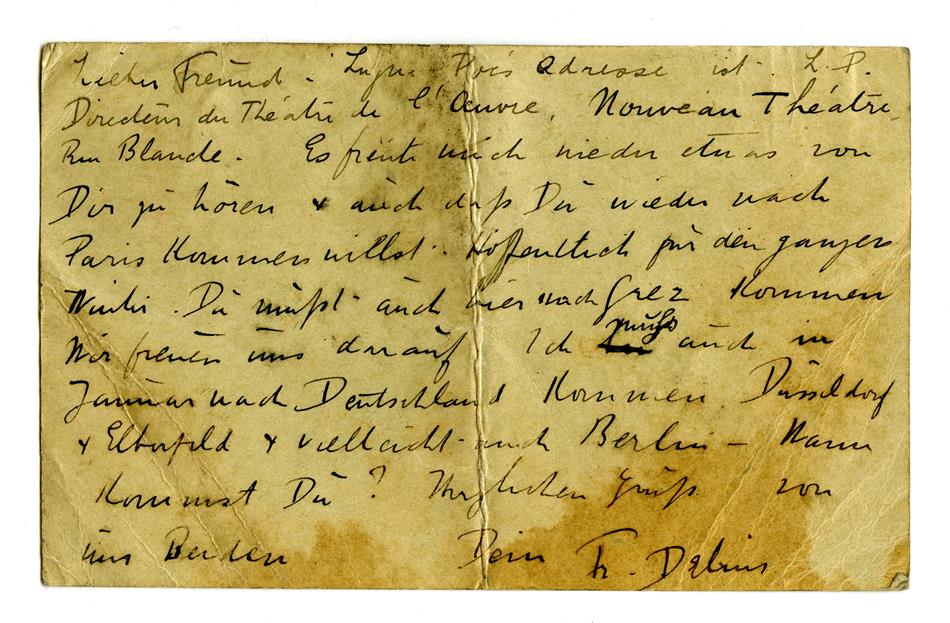 Lieber Freund - Lugné Poë's Adresse ist. L.P.
Directeur du Théâtre de l'Œuvre, Nouveau Théâtre,
Rue Blanche. Es freute mich wieder etwas von
Dir zu hören & auch daß Du wieder nach
Paris Kommen willst. Hoffentlich für den ganzen
Winter. Du mußt auch hier nach Grez Kommen
Wir freuen uns darauf Ich muß auch im
Januar nach Deutschland Kommen. Düsseldorf
& Elberfeld & vielleicht auch Berlin - Wann
Kommst Du? Herzlichen Gruß von
uns Beiden Dein Fr. Delius